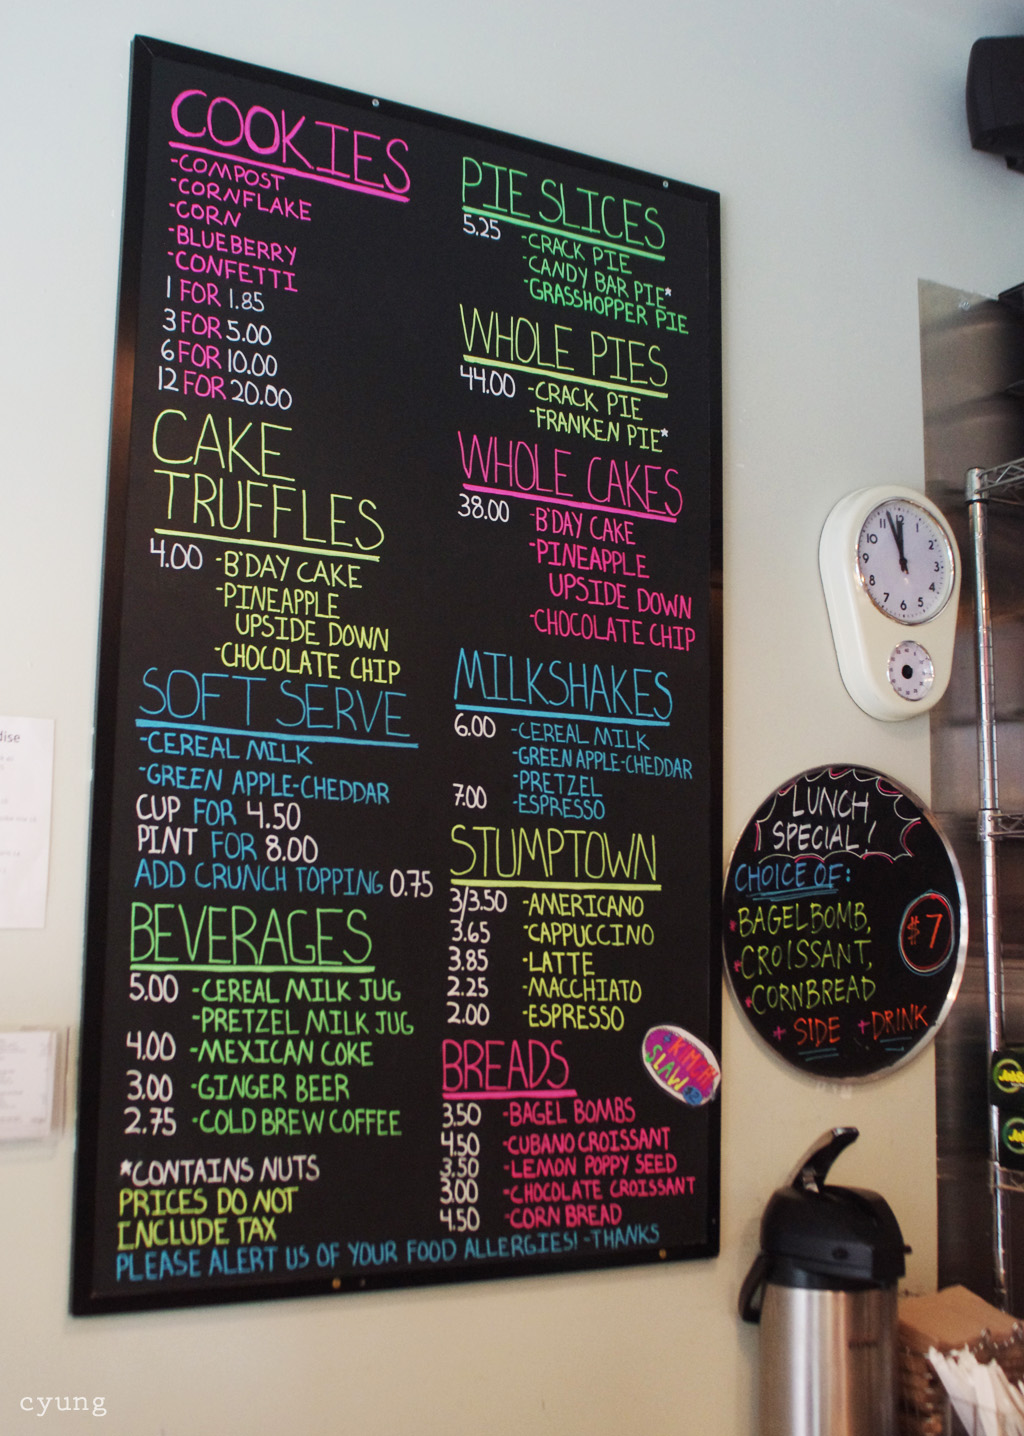 COOKIES
-COMPOST
-CORNFLAKE
-CORN
-BLUEBERRY
-CONFETTI
1 FOR 1.85
3 FOR 5.00
6 FOR 10.00
12 FOR 20.00
CAKE
TRUFFLES
4.00 -B'DAY CAKE
-PINEAPPLE
UPSIDE DOWN
-CHOCOLATE CHIP
SOFT SERVE
-CEREAL MILK
-GREEN APPLE-CHEDDAR
CUP FOR 4.50
PINT FOR 8.00
ADD CRUNCH TOPPING 0.75
BEVERAGES
5.00 -CEREAL MILK JUG
-PRETZEL MILK JUG
4.00 -MEXICAN COKE
3.00 -GINGER BEER
2.75 -COLD BREW COFFEE
*CONTAINS NUTS
PRICES DO NOT
INCLUDE TAX
PLEASE ALERT US OF YOUR FOOD ALLERGIES! -THANKS
PIE SLICES
5.25 -CRACK PIE
-CANDY BAR PIE*
-GRASSHOPPER PIE
WHOLE PIES
44.00 -CRACK PIE
-FRANKEN PIE*
WHOLE CAKES
38.00 -B'DAY CAKE
-PINEAPPLE
UPSIDE DOWN
-CHOCOLATE CHIP
MILKSHAKES
6.00 -CEREAL MILK
-GREEN APPLE-CHEDDAR
-PRETZEL
7.00 -ESPRESSO
STUMPTOWN
3/3.50 -AMERICANO
3.65 -CAPPUCCINO
3.85 -LATTE
2.25 -MACCHIATO
2.00 -ESPRESSO
BREADS
3.50 -BAGEL BOMBS
4.50 -CUBANO CROISSANT
3.50 -LEMON POPPY SEED
3.00 -CHOCOLATE CROISSANT
4.50 -CORN BREAD
+KIMCHI
SLAW $2
12 1 2 3 4 5 6 7 8 9 10 11
LUNCH
SPECIAL!
CHOICE OF:
*BAGEL BOMB,
*CROISSANT,
*CORNBREAD
$7
+ SIDE + DRINK
cyung